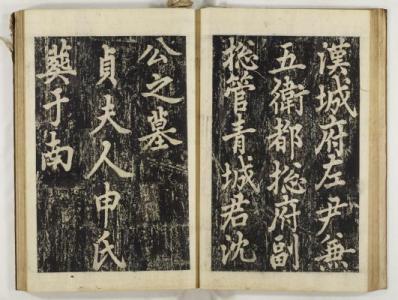 漢城府左尹兼
五衛都捴府副
捴管青城君沈
公之墓
貞夫人申氏
葬于南